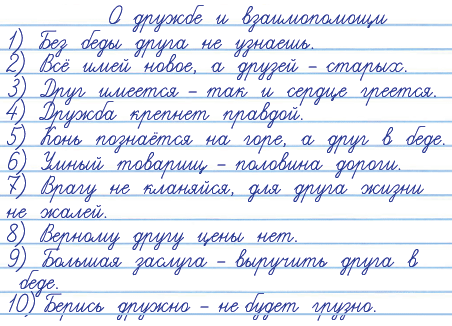 О дружбе и взаимопомощи
1) Без беды друга не узнаешь.
2) Всё имей новое, а друзей – старых.
3) Друг имеется – так и сердце греется.
4) Дружба крепнет правдой.
5) Конь познаётся на горе, а друг в беде.
6) Умный товарищ – половина дороги.
7) Врагу не кланяйся, для друга жизни
не жалей.
8) Верному другу цены нет.
9) Большая заслуга – выручить друга в
беде.
10) Берись дружно – не будет грузно.